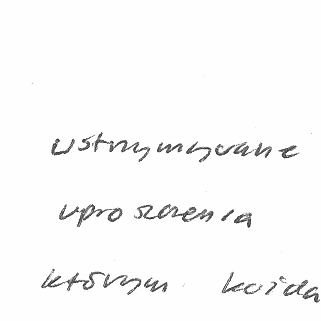 wstrzymywane
uproszczenia
którym każda